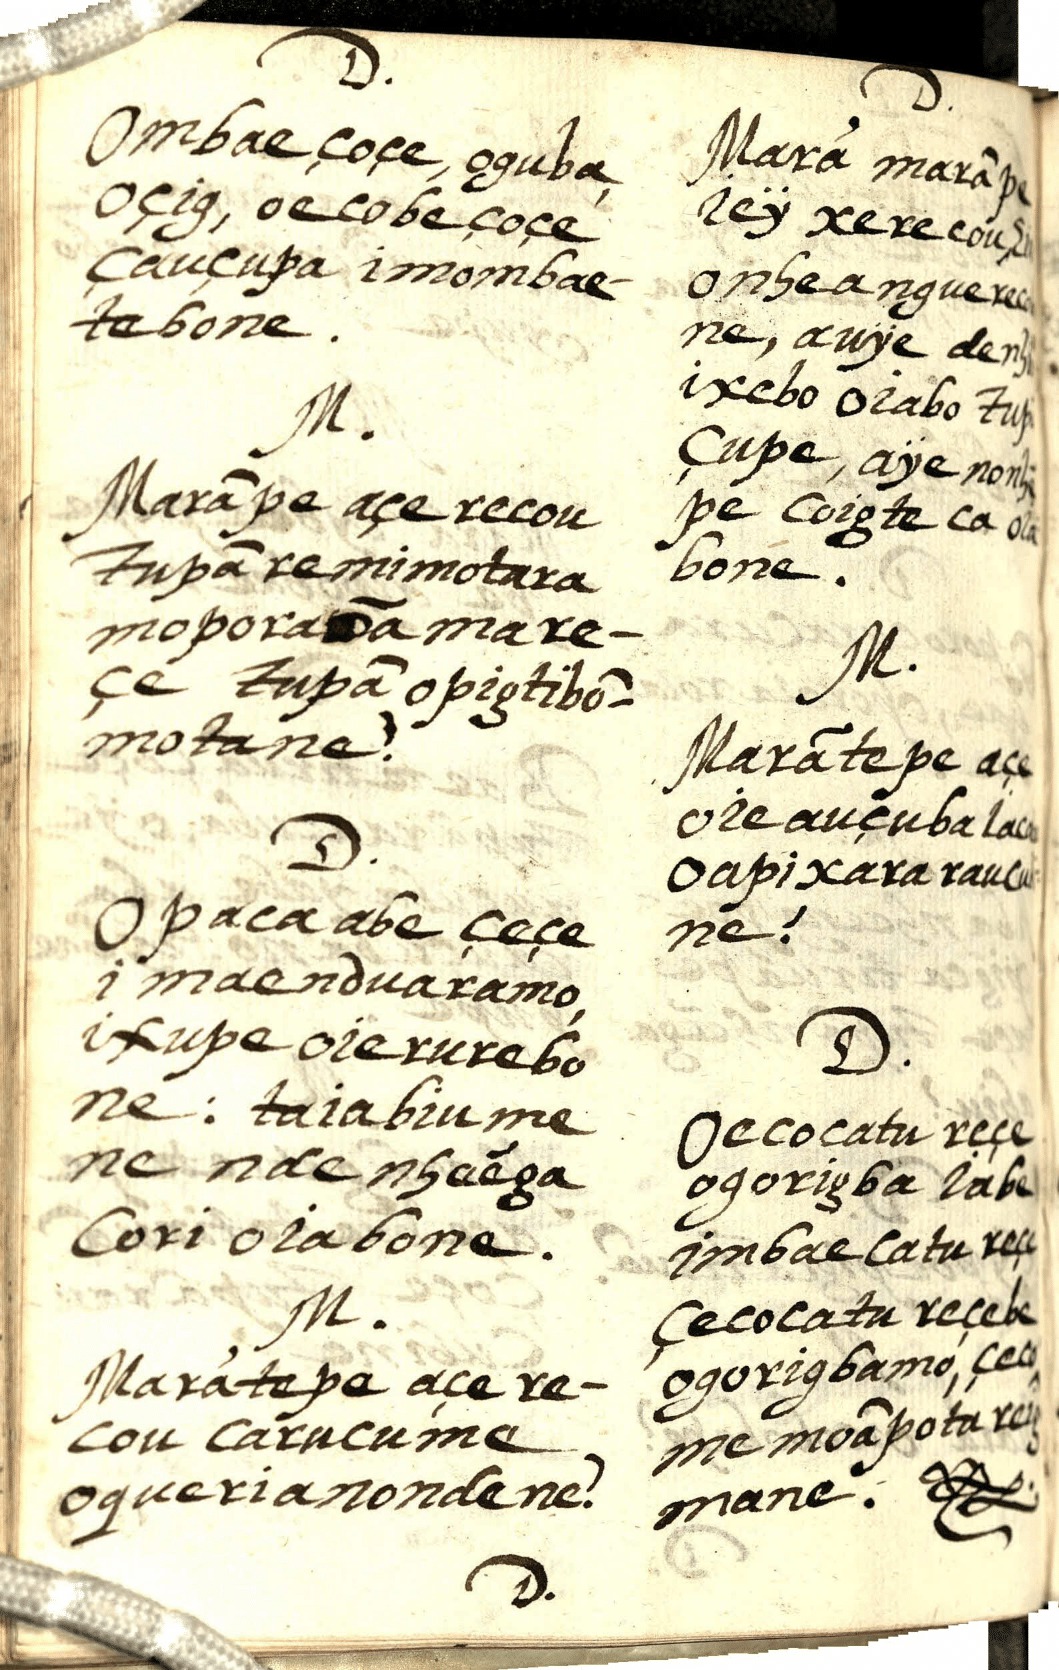 D.
Ombae çoçe, oguba,
oçig, oecobe çoçe
çauçupa imombae-
tebone.
M.
Marãpe açe recou
tupã remimotara
moporaõama re-
çe tupã opigtibõ-
motane?
D.
Opaca abe çeçe
i maenduaramo,
ixupe oierurebo
ne: taiabiume
ne nde nheẽga
Cori oiabone.
M.
Marátepe açe re-
cou carucume
oquerianondene?
D.
D.
Mará marãpe
ieÿ xerecou
onheanguereco
ne, auÿe
ixebo oiabo
Çupe, aÿe
pe coigte ca
bone.
M.
Marãtepe açe
oieauçuba
oapixara
ne?
D.
Oecocatu reçe
ogorigba iabe
imbaecatu reçe
çecocatu reçebe
ogorigbamo,
me moãpota
mane.